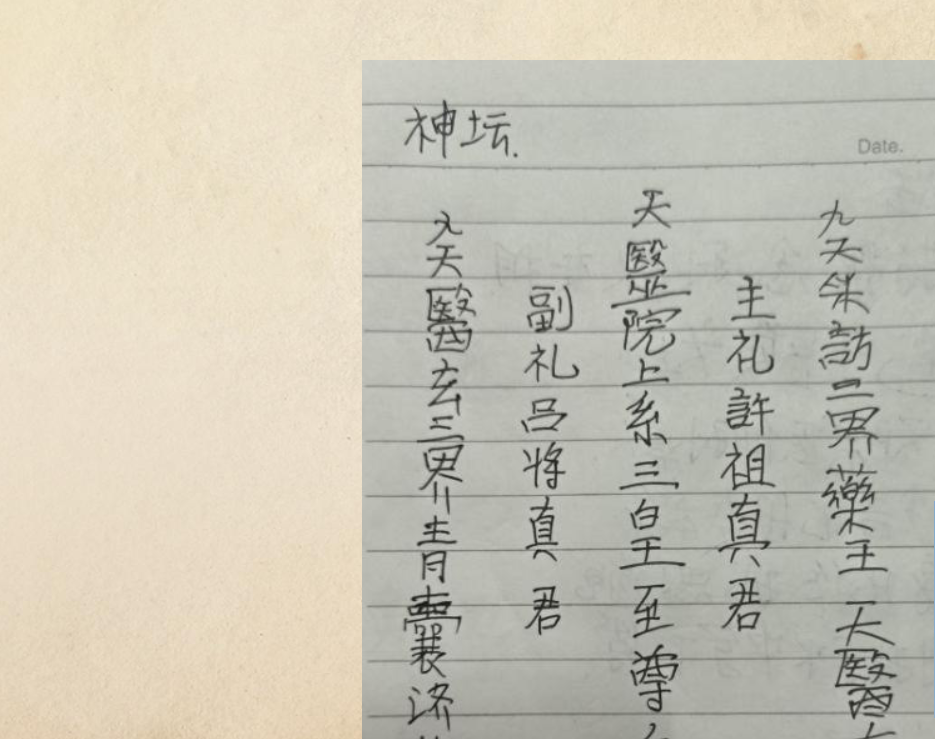 神坛.
Date.
九天采訪三界藥王天醫
主礼許祖真君
天醫院上系三皇至尊
副礼吕将真君
九天醫玄三界青囊济